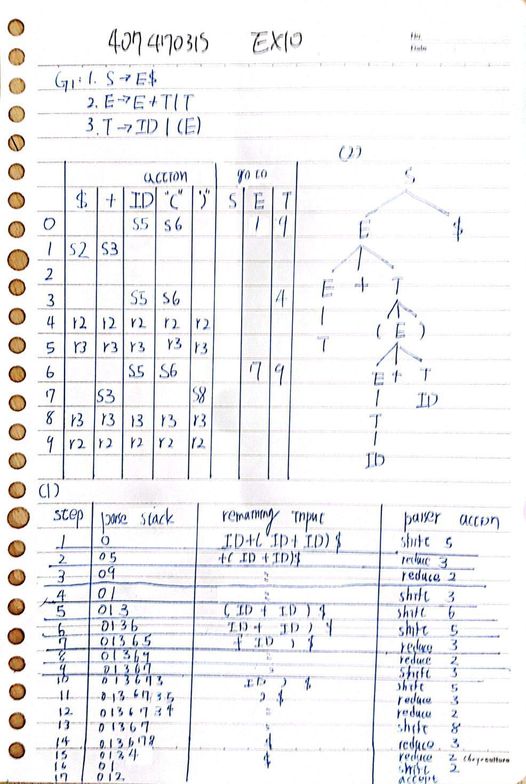 407470315 EX10
G1: 1. S→E$
2. E→E+T|T
3. T→ID|(E)
action goto
$ + ID "(" ")" S E T
0 S5 S6 1 9
1 S2 S3
2
3 S5 S6 4
4 r2 r2 r2 r2 r2
5 r3 r3 r3 r3 r3
6 S5 S6 7 9
7 S3 S8
8 r3 r3 r3 r3 r3
9 r2 r2 r2 r2 r2
(2)
S
E $
E + T
T ( E )
E + T
T ID
ID
(1)
step parse stack remaining input parser action
1 0 ID+( ID+ ID) $ shift 5
2 05 +( ID +ID)$ reduce 3
3 09 " reduce 2
4 01 " shift 3
5 013 ( ID + ID ) $ shift 6
6 0136 ID + ID ) $ shift 5
7 01365 + ID ) $ reduce 3
8 01369 " reduce 2
9 01367 " shift 3
10 013673 ID ) $ shift 5
11 0136735 ) $ reduce 3
12 0136734 " reduce 2
13 01367 " shift 8
14 013678 $ reduce 3
15 0134 $ reduce 2
16 01 shift 2
17 012 accept